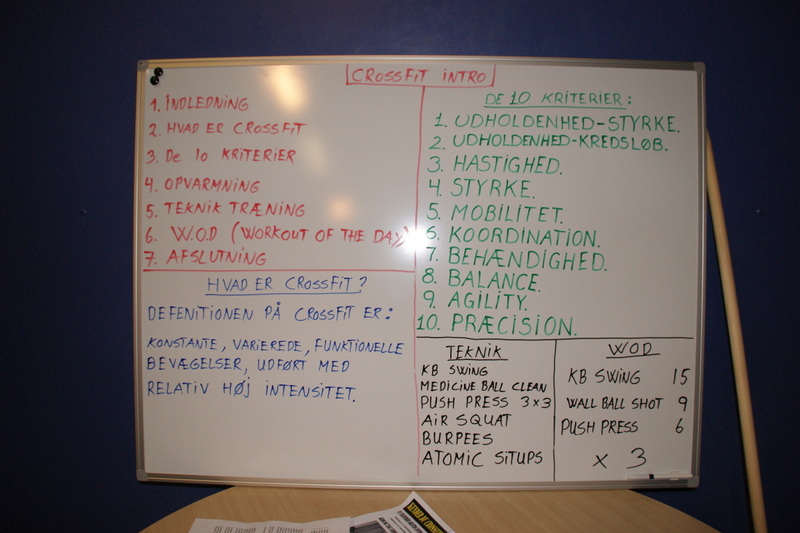 CROSSFIT INTRO
1. INDLEDNING
2. HVAD ER CROSSFIT
3. De 10 KRITERIER
4. OPVARMNING
5. TEKNIK TRÆNING
6. W.O.D (WORKOUT OF THE DAY)
7. AFSLUTNING
HVAD ER CROSSFIT?
DEFENITIONEN PÅ CROSSFIT ER:
KONSTANTE, VARIEREDE, FUNKTIONELLE
BEVÆGELSER, UDFØRT MED
RELATIV HØJ INTENSITET.
DE 10 KRITERIER:
1. UDHOLDENHED-STYRKE.
2. UDHOLDENHED-KREDSLØB.
3. HASTIGHED.
4. STYRKE.
5. MOBILITET.
6. KOORDINATION.
7. BEHÆNDIGHED.
8. BALANCE.
9. AGILITY.
10. PRÆCISION.
TEKNIK
KB SWING
MEDICINE BALL CLEAN
PUSH PRESS 3x3
AIR SQUAT
BURPEES
ATOMIC SITUPS
WOD
KB SWING 15
WALL BALL SHOT 9
PUSH PRESS 6
x 3